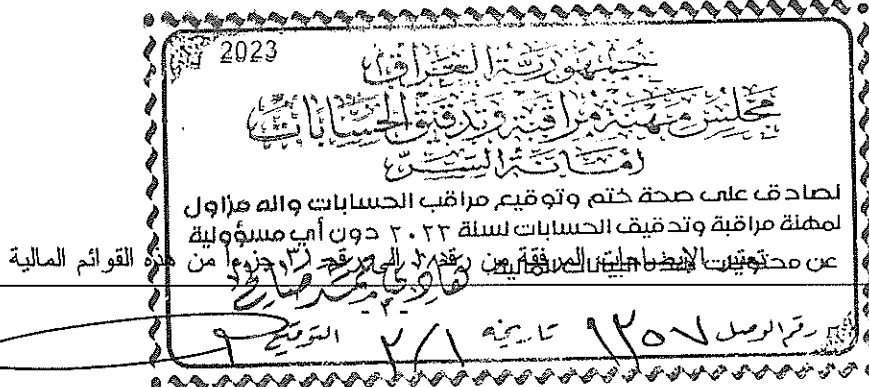 2023
جمهورية العراق
مجلس مهنة مراقبة وتدقيق الحسابات
أمانة السر
نصادق على صحة ختم وتوقيع مراقب الحسابات وانه مزاول
لمهنة مراقبة وتدقيق الحسابات لسنة ٢٠٢٣ دون أي مسؤولية
عن محتويات هذه البيانات المالية
تعتبر الإيضاحات المرفقة من رقم ١ إلى رقم ٣١ جزءاً من هذه القوائم المالية
- ٣ -
رقم الوصل ١٣٥٧ تاريخه ٢/١ التوقيع